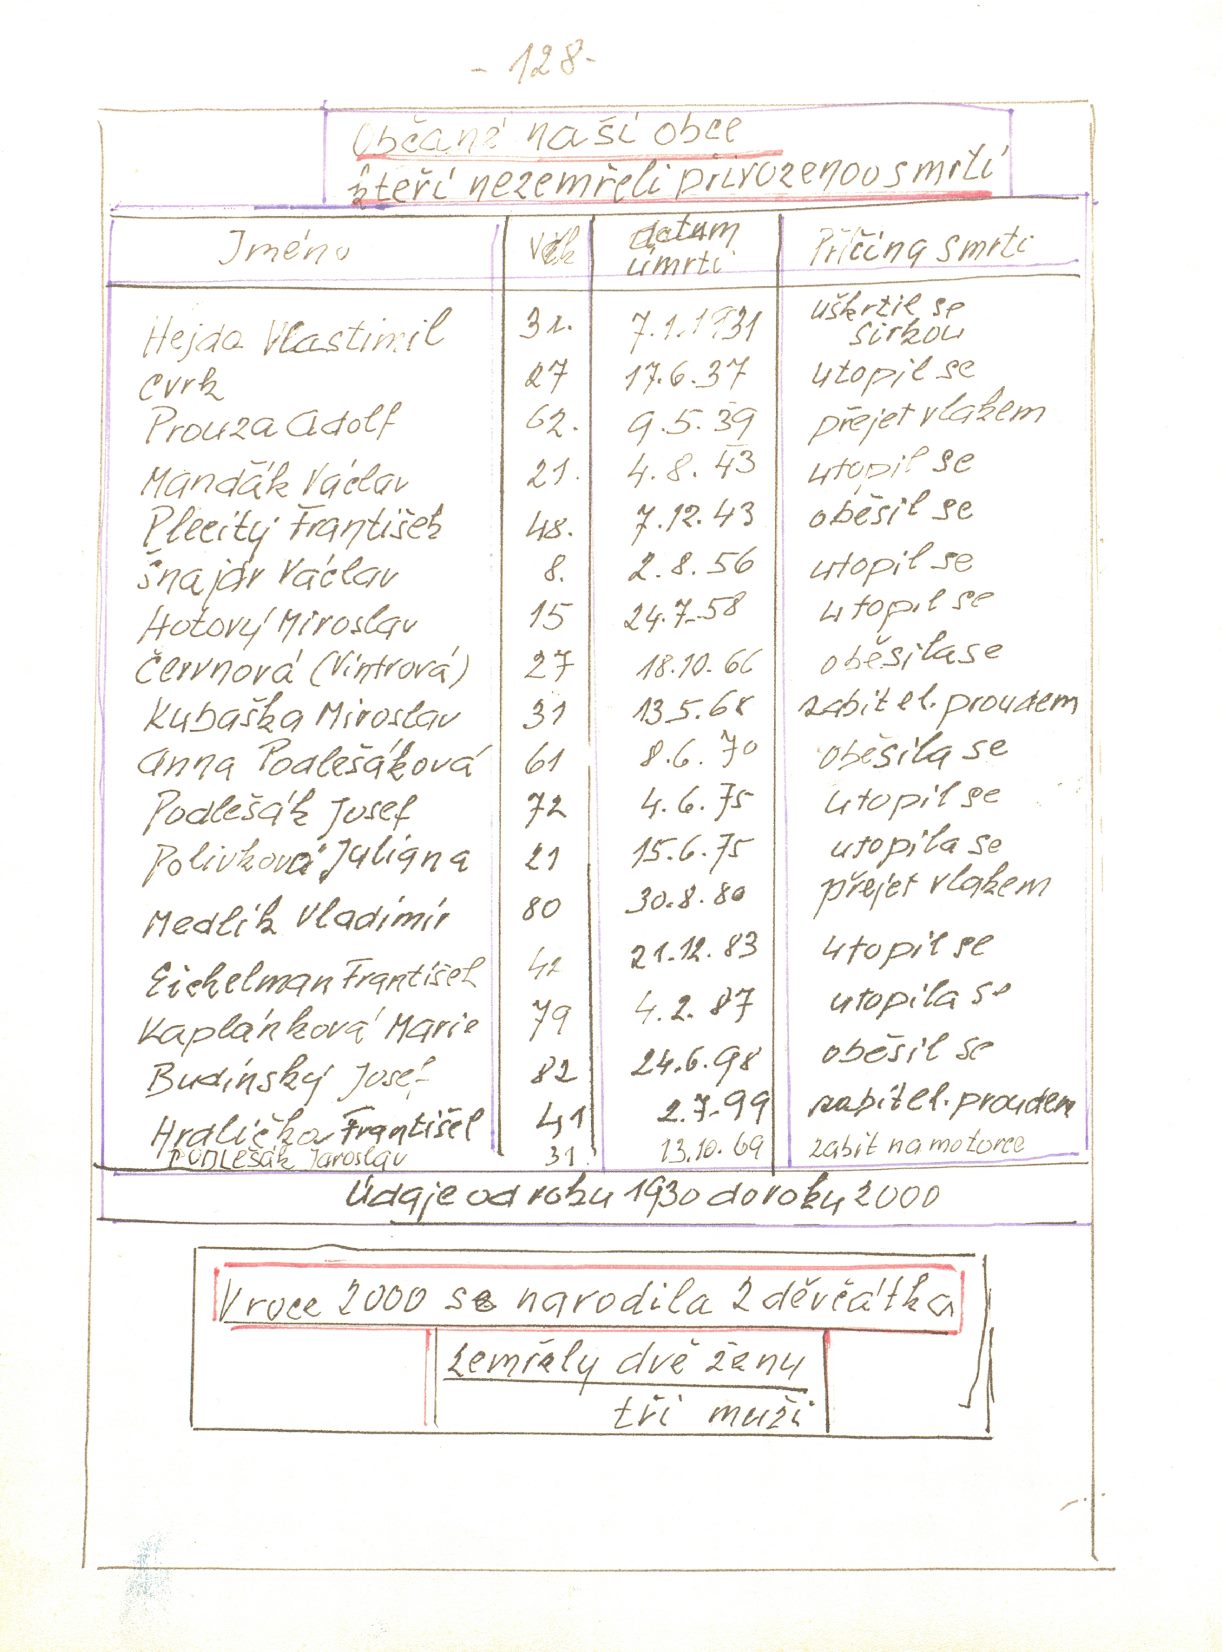 - 128 -
Občané naší obce
kteří nezemřeli přirozenou smrtí
Jméno Věk datum úmrtí Příčina smrti
Hejda Vlastimil 31. 7.1.1931 uškrtil se sirkou
Cvrk 27 17.6.37 utopil se
Prouza Adolf 62. 9.5.39 přejet vlakem
Mandák Václav 21. 4.8.43 utopil se
Plecitý František 48. 7.12.43 oběsil se
Šnajdr Václav 8. 2.8.56 utopil se
Hotový Miroslav 15 24.7.58 utopil se
Červnová (Vintrová) 27 18.10.66 oběsila se
Kubaška Miroslav 31 13.5.68 zabit el. proudem
Anna Podlešáková 61 8.6.70 oběsila se
Podlešák Josef 72 4.6.75 utopil se
Polívková Juliana 21 15.6.75 utopila se
Medlík Vladimír 80 30.8.80 přejet vlakem
Eichelman František 42 21.12.83 utopil se
Kaplánková Marie 79 4.2.87 utopila se
Budínský Josef 82 24.6.98 oběsil se
Hrdlička František 41 2.7.99 zabit el. proudem
PODLEŠÁK Jaroslav 31 13.10.69 zabit na motorce
Údaje od roku 1930 do roku 2000
V roce 2000 se narodila 2 děvčátka
zemřely dvě ženy
tři muži